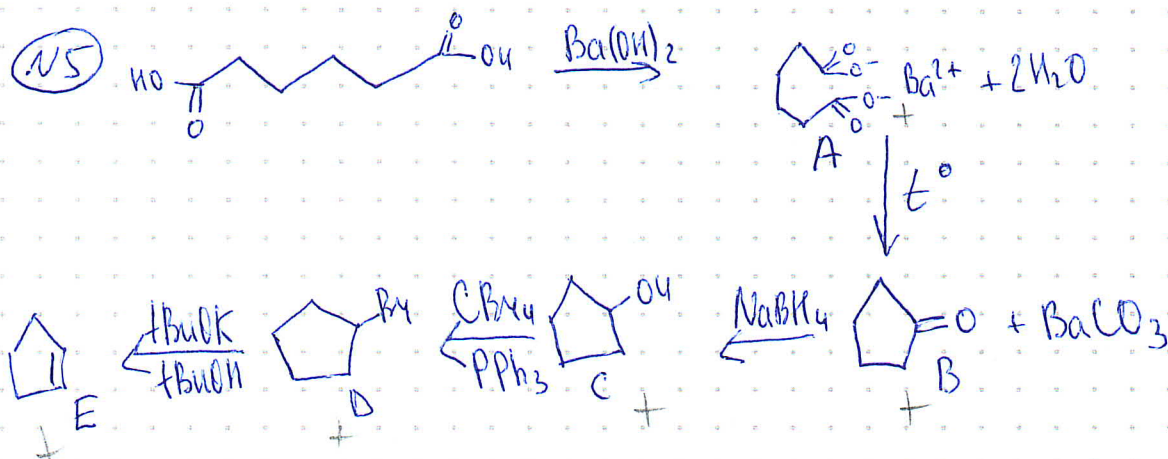 N5 HO O O OH Ba(OH)2 O O- O- O Ba2+ + 2H2O
+
A
t°
E tBuOK tBuOH D Br CBr4 PPh3 C OH NaBH4 B =O + BaCO3
+ + + +